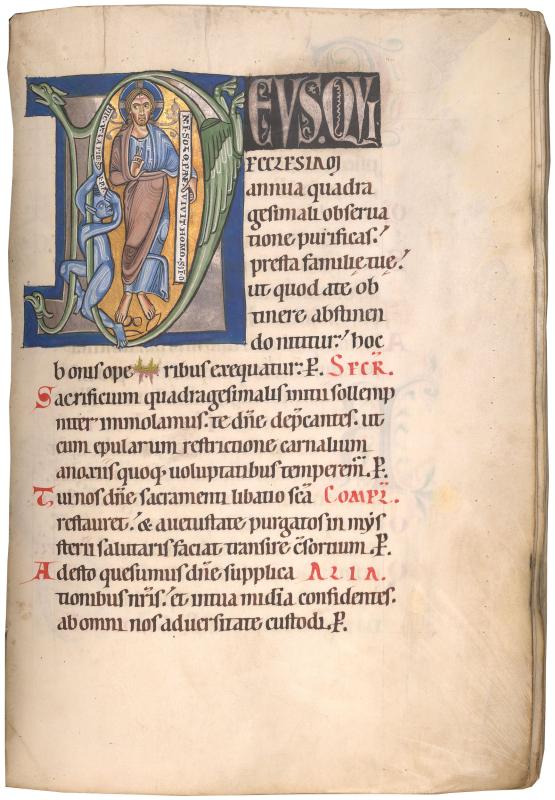 DEVS. QVI
N I SOLO PANE VIVIT HOMO
annua quadra
gesimali obserua
tione purificas.
presta familię tuę.
ut quod a te ob
tinere abstinen
do nititur. hoc
bonis ope ribus exequatur. P. SECR.
Sacrificium quadragesimalis initii sollemp
niter immolamus. te dñe dep̄cantes. ut
cum epularum restrictione carnalium
a noxiis quoq; uoluptatibus temperem̄. P.
Tui nos dñe sacramenti libatio sc̄a COMPL.
restauret. & a uetustate purgatos in mys
terii salutaris faciat transire c̄sortium. P.
Adesto quesumus dñe supplica ALIA.
tionibus nr̄is. et in tua mīa confidentes.
ab omni nos aduersitate custodi. P.